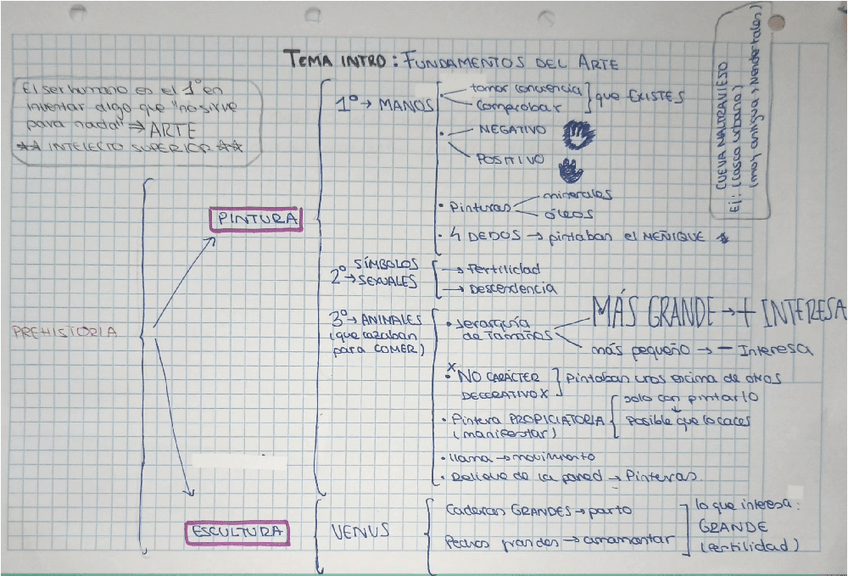 TEMA INTRO: FUNDAMENTOS DEL ARTE
El ser humano es el 1º en
inventar algo que "no sirve
para nada" ⇒ ARTE
** INTELECTO SUPERIOR **
CUEVA MALTRAVIESO
Ej: (casco urbano)
(muy antigua, Neandertales)
PREHISTORIA
PINTURA
1º → MANOS
tomar conciencia
comprobar
que EXISTES
NEGATIVO
POSITIVO
• Pinturas
minerales
óleos
• 4 DEDOS → pintaban el MEÑIQUE
2º → SÍMBOLOS
SEXUALES
→ Fertilidad
→ Descendencia
3º → ANIMALES
(que cazaban
para COMER)
• Jerarquía
de tamaños
MÁS GRANDE → + INTERESA
más pequeño → − Interesa
• *NO CARÁCTER
DECORATIVO*
Pintaban unos encima de otros
• Pintura PROPICIATORIA
(manifestar)
solo con pintarlo
Posible que lo caces
• llama → movimiento
• Relieve de la pared → Pinturas.
ESCULTURA
VENUS
Caderas GRANDES → parto
Pechos grandes → amamantar
lo que interesa:
GRANDE
(Fertilidad)